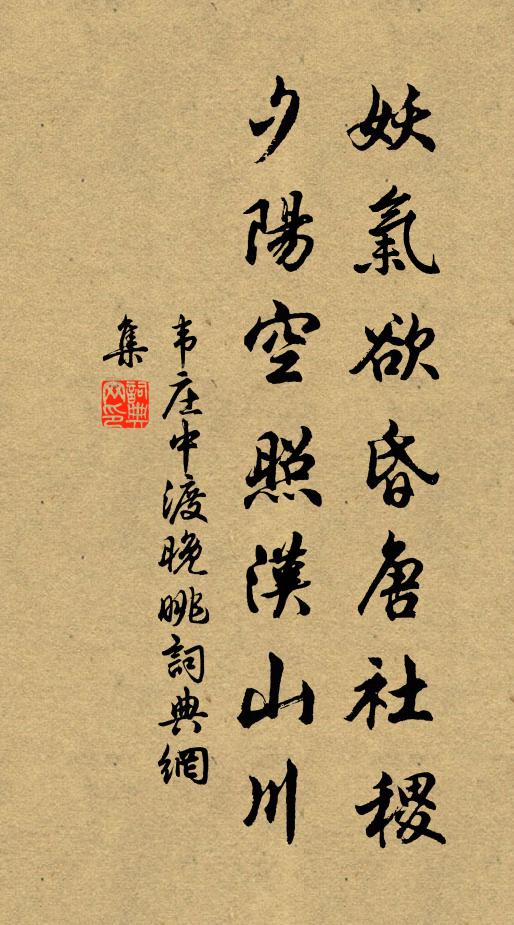 妖氣欲昏唐社稷
夕陽空照漢山川
韦庄中渡晚眺詞典網
集
詞典
网印